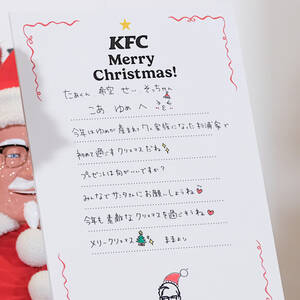 KFC
Merry
Christmas!
たぁくん 希空 せい そっちゃん
こあ ゆめ へ
今年はゆめが産まれて7人家族になった杉浦家で
初めて過ごすクリスマスだね
プレゼントは何がいいですか?
みんなでサンタさんにお願いしようね
今年も素敵なクリスマスを過ごそうね
メリークリスマス ままより